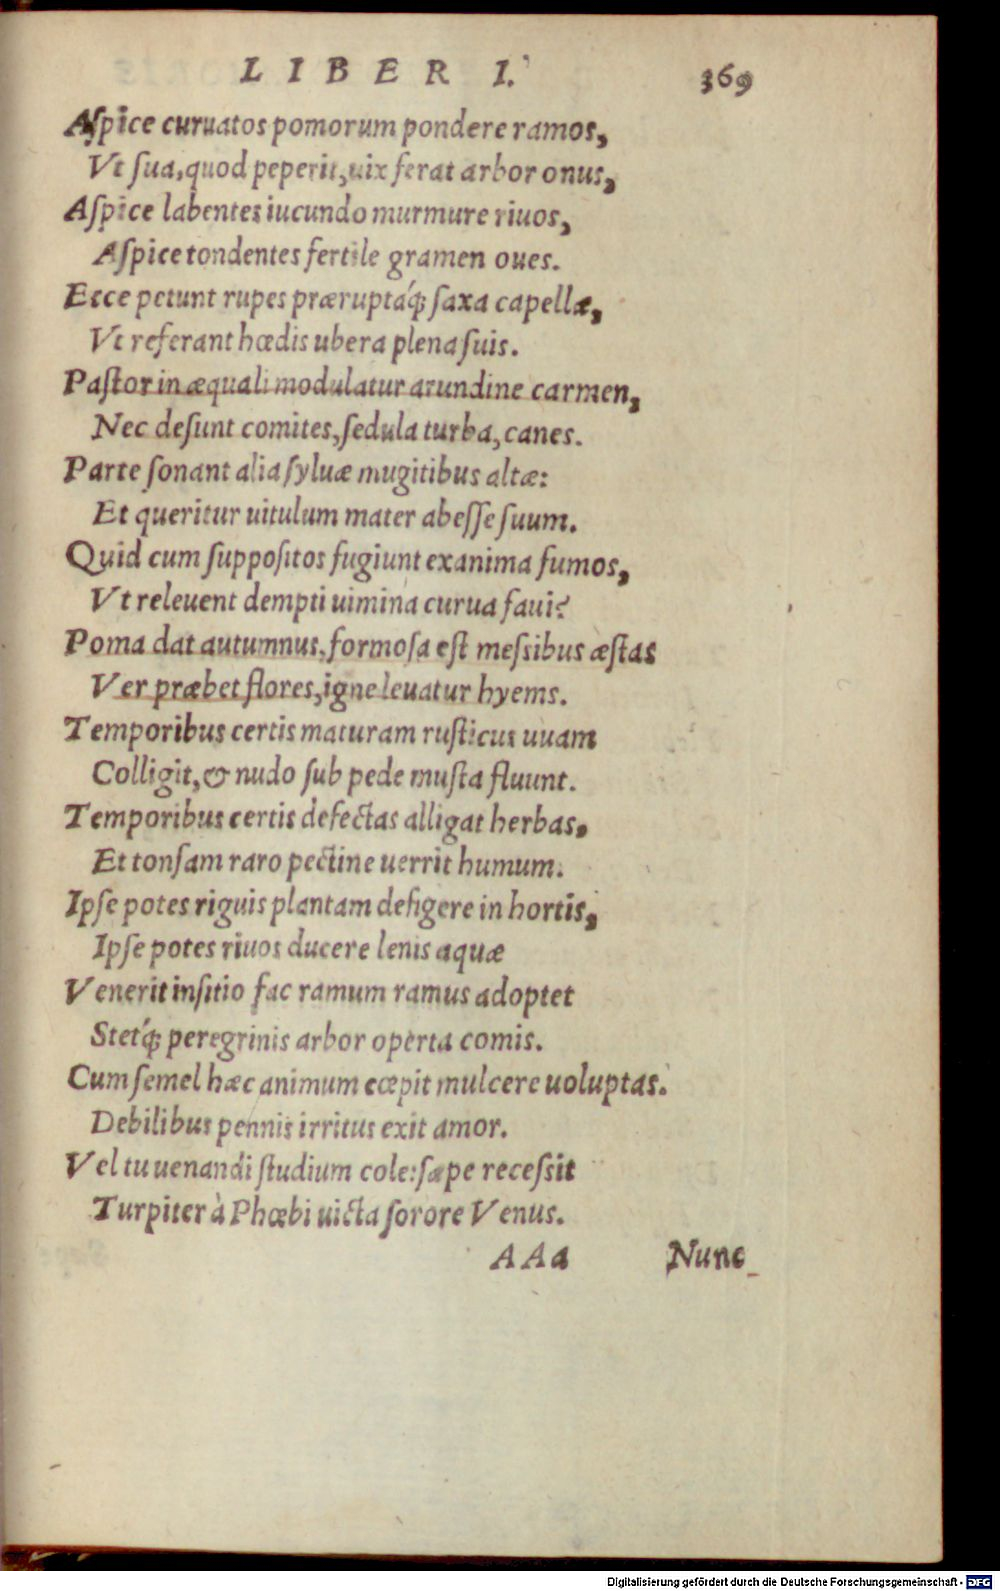 LIBER I.
369
Aſpice curuatos pomorum pondere ramos,
Vt ſua, quod peperit, uix ferat arbor onus,
Aſpice labentes iucundo murmure riuos,
Aſpice tondentes fertile gramen oues.
Ecce petunt rupes præruptáq́ꝫ ſaxa capellæ,
Vt referant hœdis ubera plena ſuis.
Paſtor inæquali modulatur arundine carmen,
Nec deſunt comites, ſedula turba, canes.
Parte ſonant alia ſyluæ mugitibus altæ:
Et queritur uitulum mater abeſſe ſuum.
Quid cum ſuppoſitos fugiunt exanima fumos,
Vt releuent dempti uimina curua faui?
Poma dat autumnus, formoſa eſt meſsibus æſtas
Ver præbet flores, igne leuatur hyems.
Temporibus certis maturam ruſticus uuam
Colligit, & nudo ſub pede muſta fluunt.
Temporibus certis defectas alligat herbas,
Et tonſam raro pectine uerrit humum.
Ipſe potes riguis plantam defigere in hortis,
Ipſe potes riuos ducere lenis aquæ
Venerit inſitio fac ramum ramus adoptet
Stetq́ꝫ peregrinis arbor operta comis.
Cum ſemel hæc animum cœpit mulcere uoluptas.
Debilibus pennis irritus exit amor.
Vel tu uenandi ſtudium cole: ſæpe receſsit
Turpiter à Phœbi uicta ſorore Venus.
AAa
Nunc
Digitalisierung gefördert durch die Deutsche Forschungsgemeinschaft - DFG